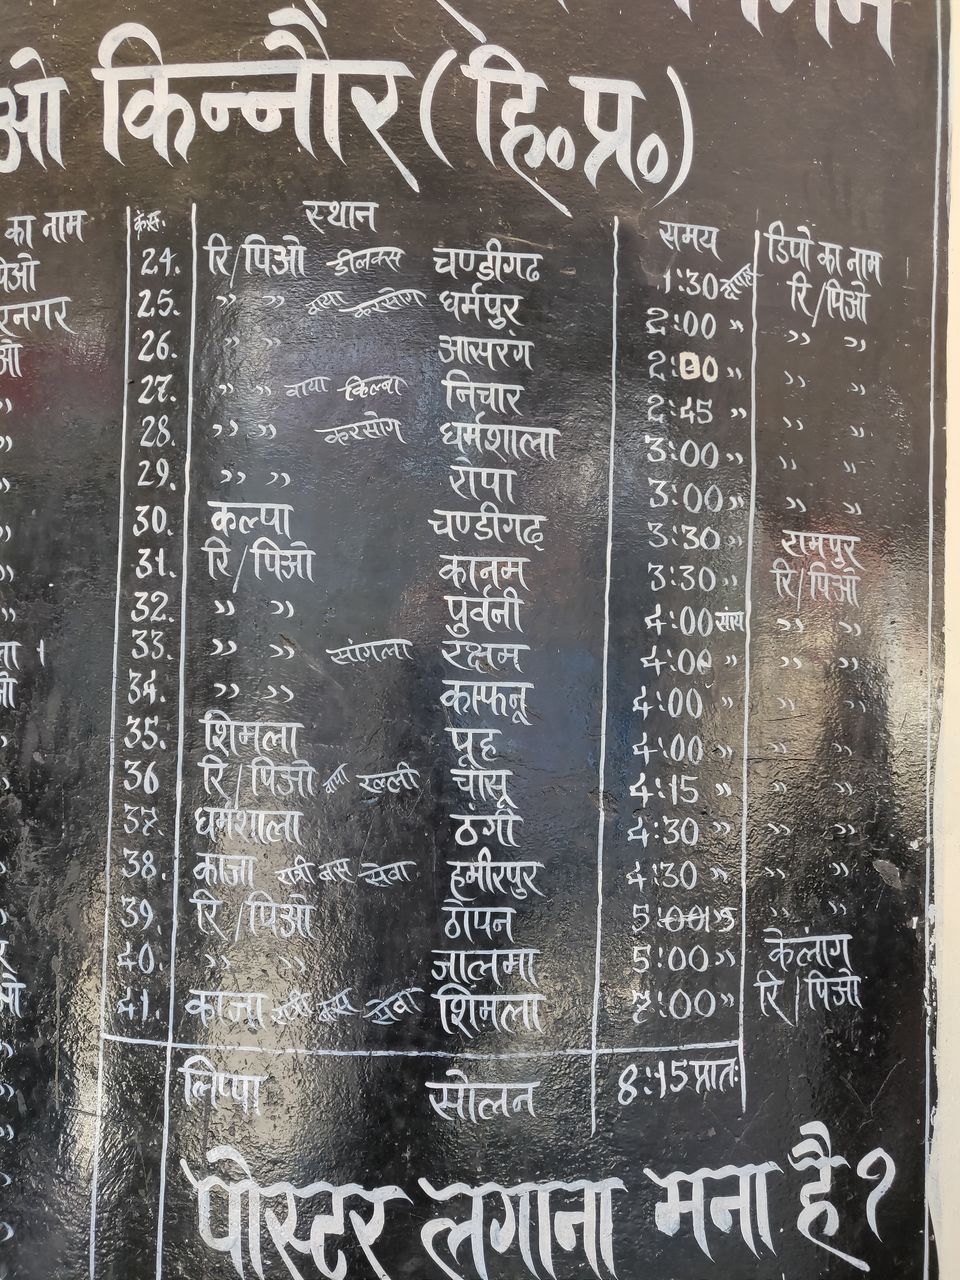 ओ किन्नौर (हि॰प्र॰)
का नाम क्र.स. स्थान समय डिपो का नाम
पिओ 24. रि/पिओ डीलक्स चण्डीगढ़ 1:30 रि/पिओ
रनगर 25. " " वाया करसोग धर्मपुर 2:00 " " "
ओ 26. " " आसरंग 2:00 " " "
" 27. " " वाया किल्बा निचार 2:45 " " "
" 28. " " करसोग धर्मशाला 3:00 " " "
" 29. " " रोपा 3:00 " " "
" 30. कल्पा चण्डीगढ़ 3:30 " रामपुर
" 31. रि/पिओ कानम 3:30 " रि/पिओ
" 32. " " पुर्वनी 4:00 सांय " "
ला 33. " " सांगला रक्षम 4:00 " " "
ओ 34. " " काफनू 4:00 " " "
" 35. शिमला पूह 4:00 " " "
" 36 रि/पिओ वाया रल्ली चांसू 4:15 " " "
37. धर्मशाला ठंगी 4:30 " " "
" 38. काजा रात्री बस सेवा हमीरपुर 4:30 " " "
" 39. रि/पिओ ठोपन 5:00 " " "
र 40. " " जालमा 5:00 " केलांग
ओ 41. काजा रात्री बस सेवा शिमला 7:00 " रि/पिओ
लिप्पा सोलन 8:15 प्रातः
पोस्टर लगाना मना है १